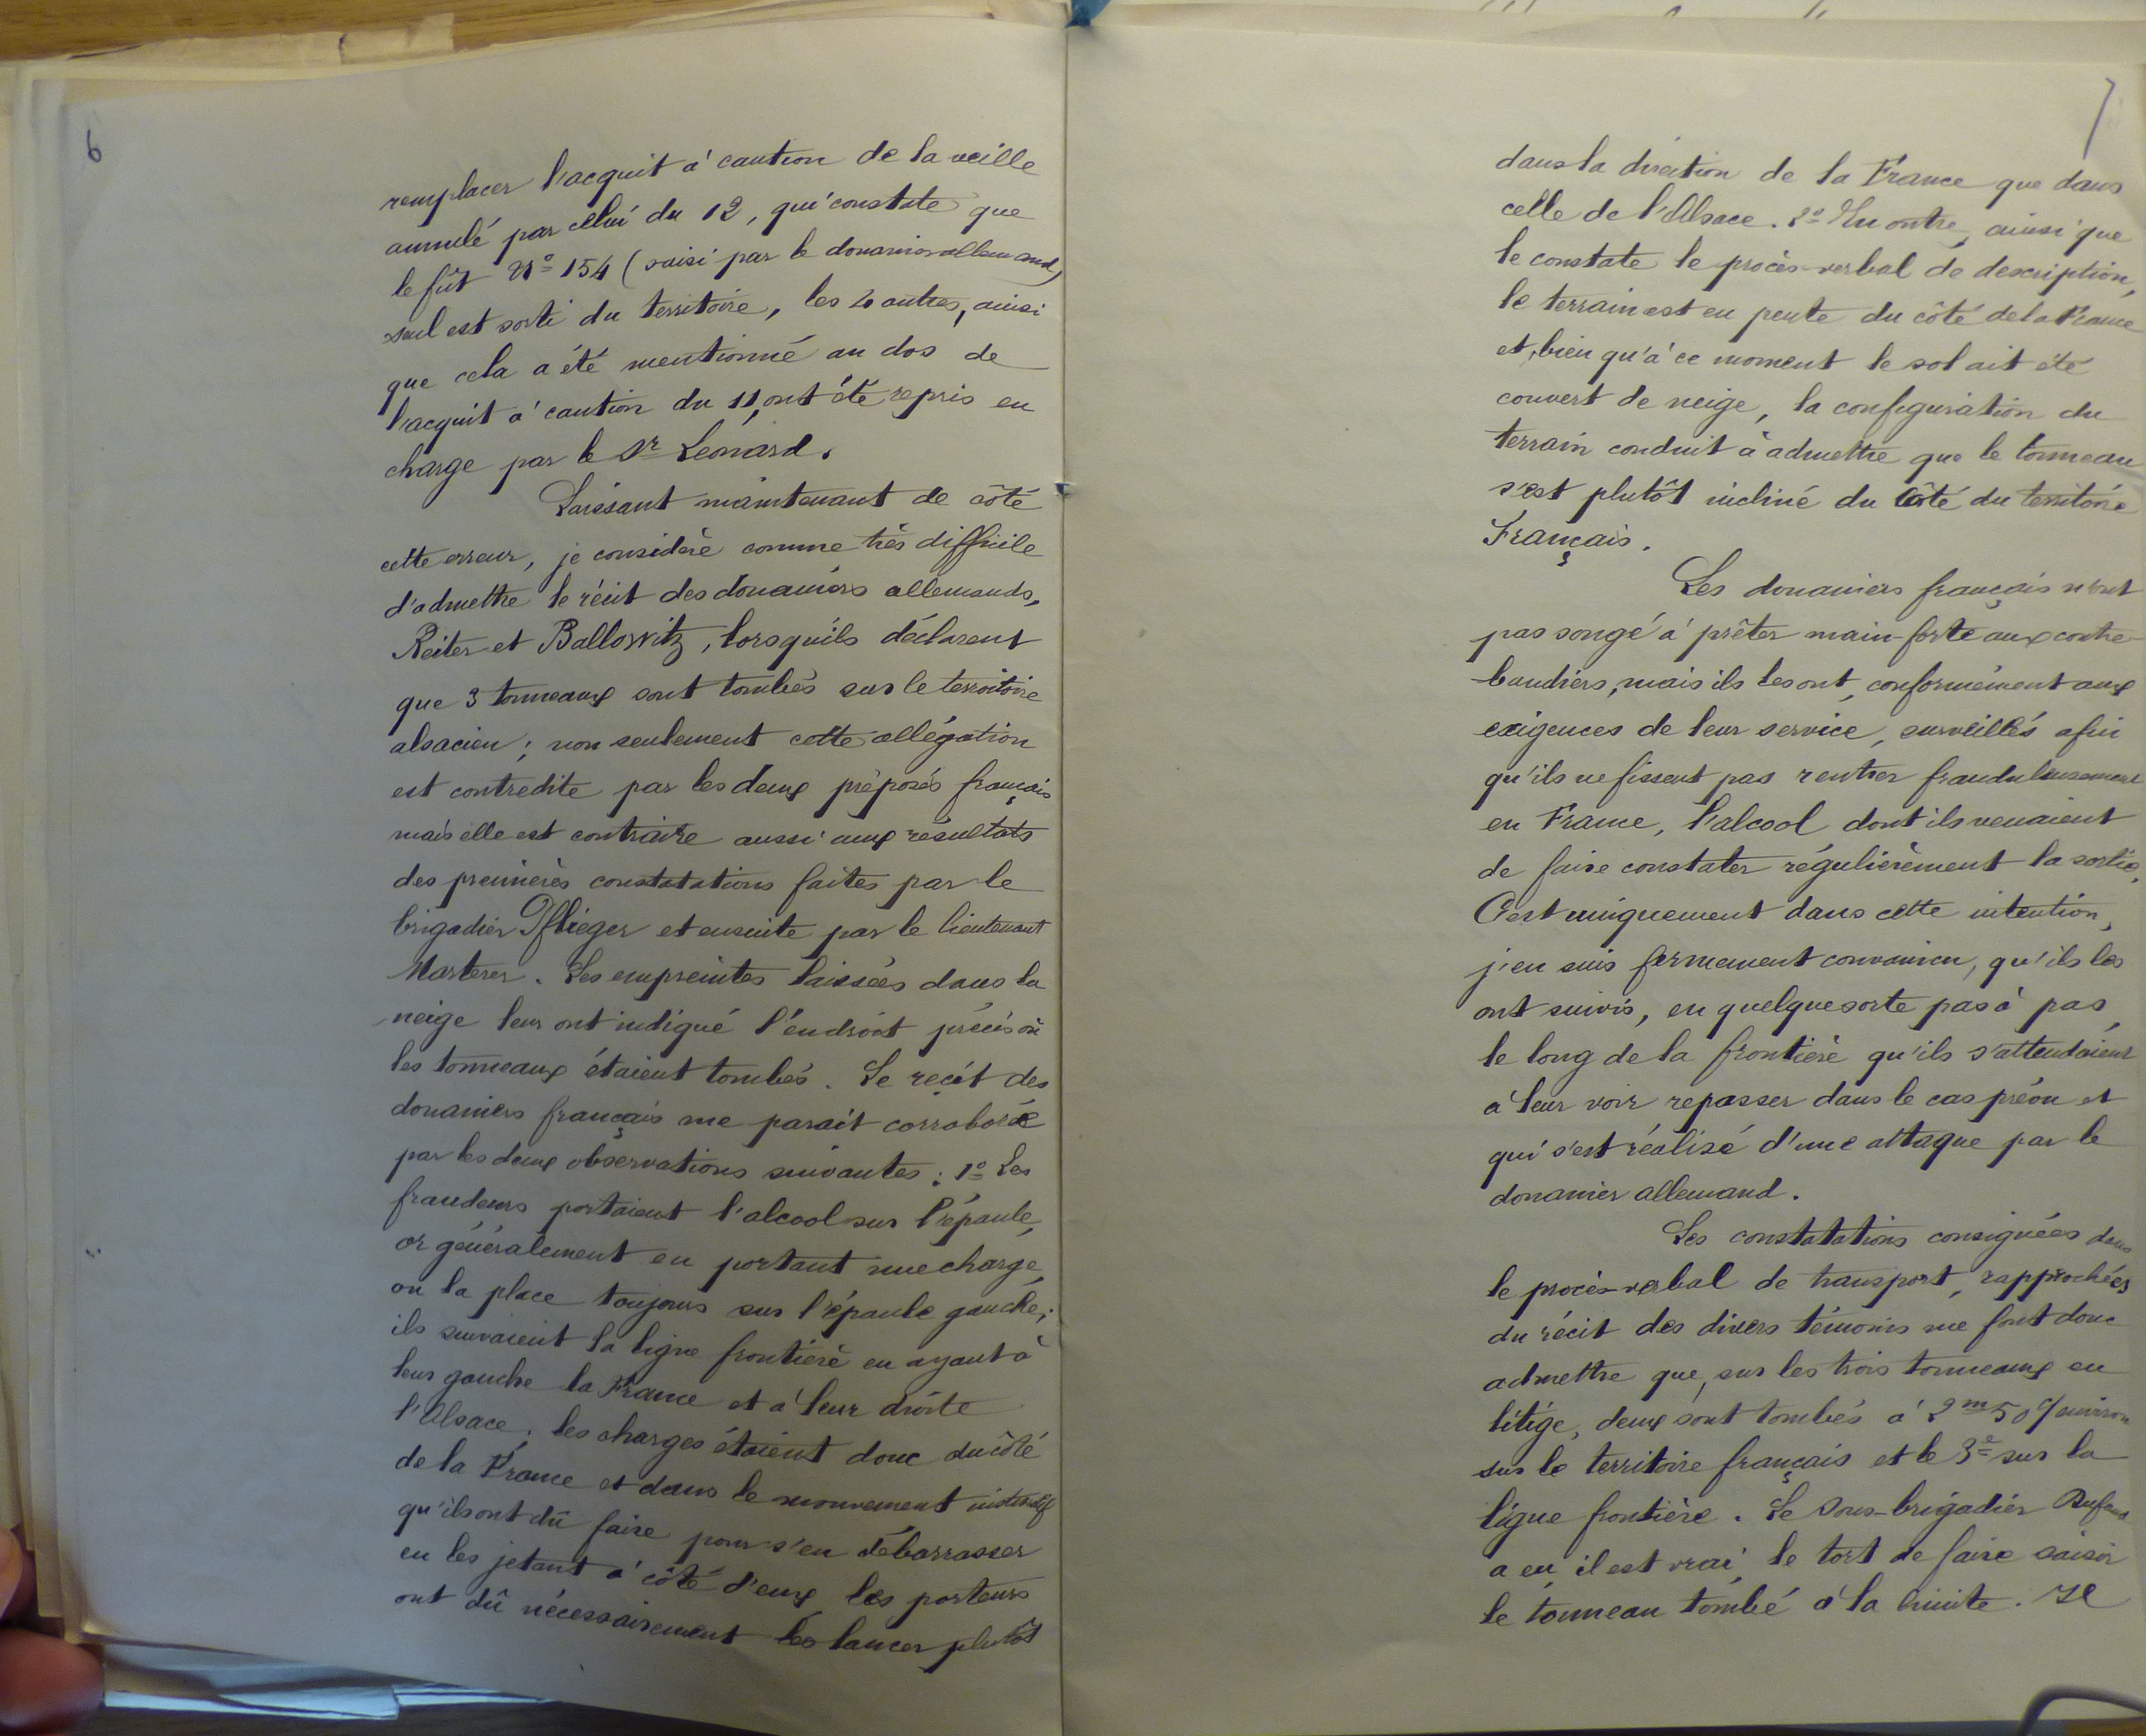 6
remplacer l'acquit à caution de la veille
annulé par celui du 12, qui constate que
le fût N° 154 (saisi par le douanier allemand)
seul est sorti du territoire, les 20 autres, ainsi
que cela a été mentionné au dos de
l'acquit à caution du 11, ont été repris en
charge par le Sr Leonard.
Laissant maintenant de côté
cette erreur, je considère comme très difficile
d'admettre le récit des douaniers allemands,
Reiter et Ballowitz, lorsqu'ils déclarent
que 3 tonneaux sont tombés sur le territoire
alsacien ; non seulement cette allégation
est contredite par les deux préposés français
mais elle est contraire aussi aux résultats
des premières constatations faites par le
brigadier Pflieger et ensuite par le lieutenant
Marterer. Les empreintes laissées dans la
neige leur ont indiqué l'endroit précis où
les tonneaux étaient tombés. Le récit des
douaniers français me paraît corroboré
par les deux observations suivantes : 1° Les
fraudeurs portaient l'alcool sur l'épaule,
or généralement en portant une charge,
on la place toujours sur l'épaule gauche ;
ils suivaient la ligne frontière en ayant à
leur gauche la France et à leur droite
l'Alsace ; les charges étaient donc du côté
de la France et dans le mouvement instinctif
qu'ils ont dû faire pour s'en débarrasser
en les jetant à côté d'eux les porteurs
ont dû nécessairement les lancer plutôt
7
dans la direction de la France que dans
celle de l'Alsace. 2° En outre, ainsi que
le constate le procès-verbal de description,
le terrain est en pente du côté de la France
et, bien qu'à ce moment le sol ait été
couvert de neige, la configuration du
terrain conduit à admettre que le tonneau
s'est plutôt incliné du côté du territoire
Français.
Les douaniers français n'ont
pas songé à prêter main-forte aux contre-
bandiers, mais ils les ont, conformément aux
exigences de leur service, surveillés afin
qu'ils ne fissent pas rentrer frauduleusement
en France, l'alcool dont ils venaient
de faire constater régulièrement la sortie.
C'est uniquement dans cette intention,
j'en suis fermement convaincu, qu'ils les
ont suivis, en quelque sorte pas à pas,
le long de la frontière qu'ils s'attendaient
à leur voir repasser dans le cas prévu et
qui s'est réalisé d'une attaque par le
douanier allemand.
Les constatations consignées dans
le procès-verbal de transport, rapprochées
du récit des divers témoins me font donc
admettre que, sur les trois tonneaux en
litige, deux sont tombés à 2m 50 environ
sur le territoire français et le 3e sur la
ligne frontière. Le Sous-brigadier
a eu il est vrai, le tort de faire saisir
le tonneau tombé à la limite. Il